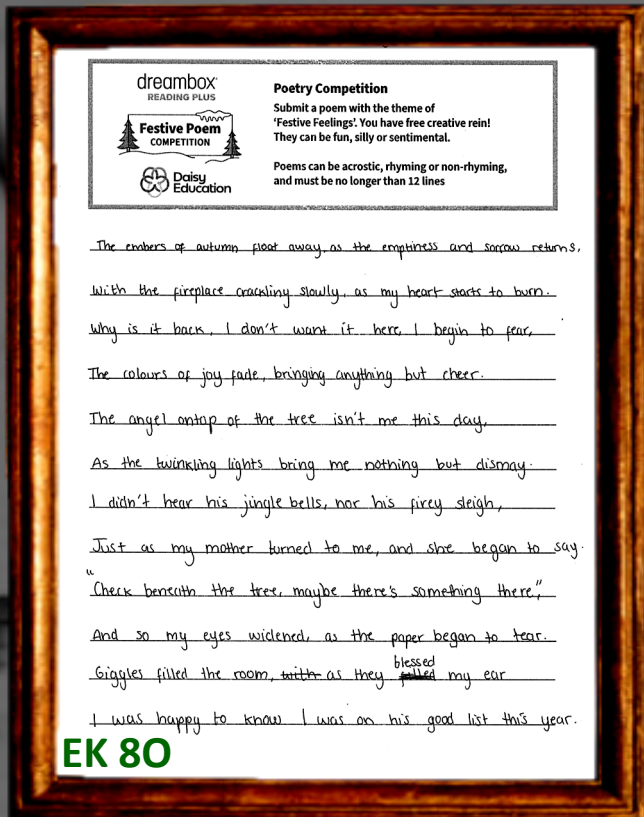 dreambox
READING PLUS
Festive Poem
COMPETITION
Daisy
Education
Poetry Competition
Submit a poem with the theme of
'Festive Feelings'. You have free creative rein!
They can be fun, silly or sentimental.
Poems can be acrostic, rhyming or non-rhyming,
and must be no longer than 12 lines
The embers of autumn float away as the emptiness and sorrow returns,
With the fireplace crackling slowly, as my heart starts to burn.
Why is it back, I don't want it here, I begin to fear,
The colours of joy fade, bringing anything but cheer.
The angel ontop of the tree isn't me this day,
As the twinkling lights bring me nothing but dismay.
I didn't hear his jingle bells, nor his firey sleigh,
Just as my mother turned to me, and she began to say.
"Check beneath the tree, maybe there's something there",
And so my eyes widened, as the paper began to tear.
Giggles filled the room, with as they blessed my ear
I was happy to know I was on his good list this year.
EK 8O